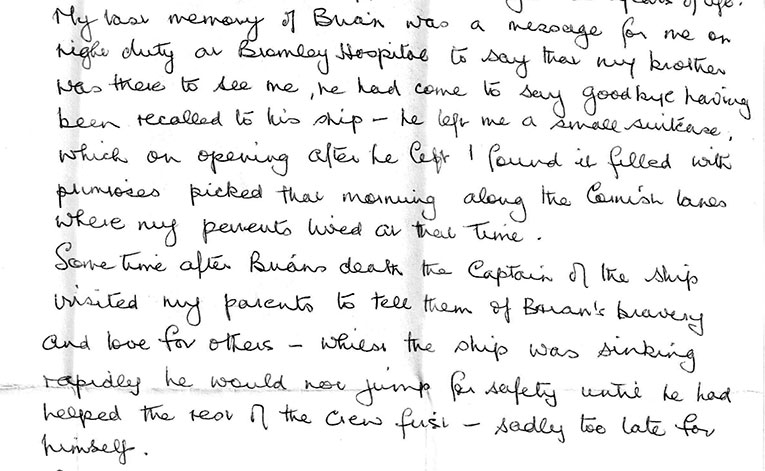 years of age.
My last memory of Brian was a message for me on
night duty at Bromley Hospital to say that my brother
was there to see me, he had come to say goodbye having
been recalled to his ship – he left me a small suitcase,
which on opening after he left I found it filled with
primroses picked that morning along the Cornish lanes
where my parents lived at that time.
Some time after Brian's death the Captain of the ship
visited my parents to tell them of Brian's bravery
and love for others – whilst the ship was sinking
rapidly he would not jump for safety until he had
helped the rest of the crew first – sadly too late for
himself.